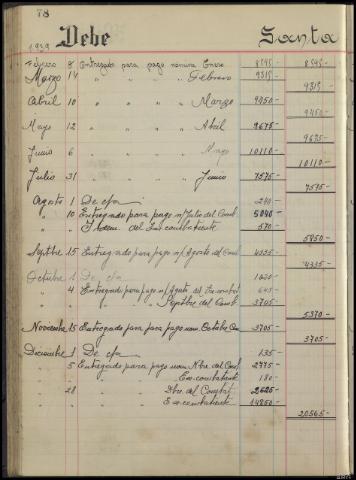 78
1939 Debe Santa
Febrero 8 Entregado para pago nómina Enero 8595- 8595-
Marzo 14 " " " " Febrero 9315-
9315-
Abril 10 " " " " Marzo 9450-
9450-
Mayo 12 " " " " Abril 9675-
9675-
Junio 6 " " " " Mayo 10110-
10110-
Julio 31 " " " " Junio 7575-
7575-
Agosto 1 De c/a 240-
" 10 Entregado para pago n/ Julio del Comb. 5040-
" " Idem del Ex combatiente 570-
5850-
Sepbre 15 Entregado para pago n/ Agosto del Comb. 4335-
4335-
Octubre 1 De c/a
" 4 Entregado para pago n/ Agosto del Excombat
" " Sepbre del Comb. 3705-
5370-
Noviembre 15 Entregado para pago nom. Octubre Com 3705-
3705-
Diciembre 1 De c/a 135-
" 5 Entregado para pago nom Nbre. del Comb.
" " Excombatiente 180-
" 28 Dbre. del Combat 2625-
" " Excombatiente 14850-
20565-